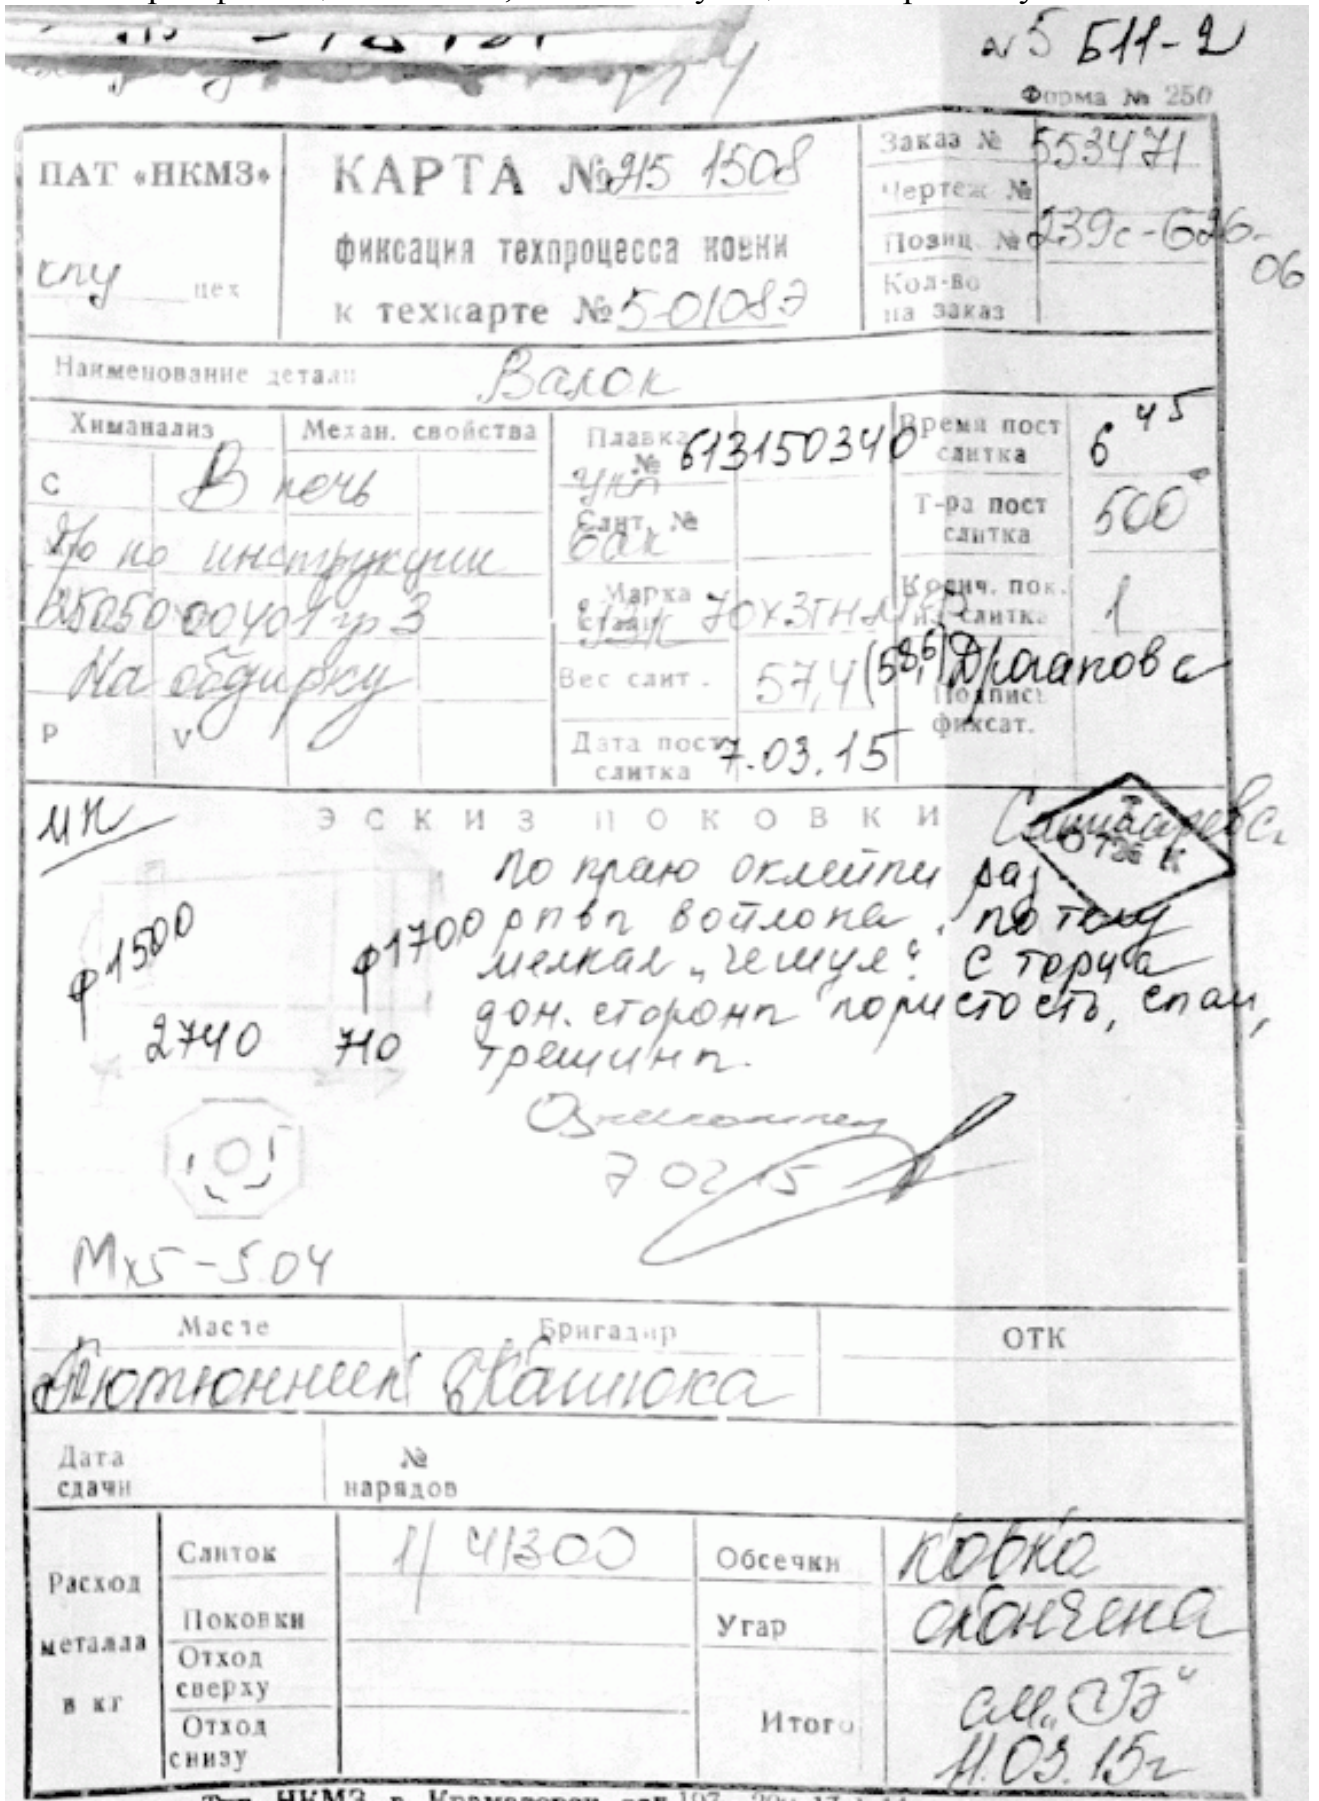 N5 Б11-2
Форма № 250
ПАТ «НКМЗ»
КПЦ цех
КАРТА № 215 1508
фиксация техпроцесса ковки
к техкарте № 5-0108Э
Заказ № 553471
Чертеж №
Позиц. № 239с-626-06
Кол-во на заказ
Наименование детали Валок
Химанализ
Механ. свойства
С В печь
Т/о по инструкции
25050 00401 гр 3
На обдирку
P V
Плавка № 613150340
Слит. №
Марка стали 70Х3ГНМФ
Вес слит. 57,4 (58,6)
Дата пост слитка 7.03.15
Время пост слитка 6 45
Т-ра пост слитка 500°
Колич. пок. из слитка 1
Подпись фиксат.
ЭСКИЗ ПОКОВКИ
ф1500
ф1700
2740 710
По краю
мелкая „чешуя". С торца
дон. стороны пористость, спаи,
трещины.
Ознакомлен
МХ5-504
Масте
Бригадир
ОТК
Тютюнник
Дата сдачи
№ нарядов
Расход металла в кг
Слиток 1/ 41300
Поковки
Отход сверху
Отход снизу
Обсечки
Угар
Итого
ковка
окончена
см. „ГБ"
11.03.15г